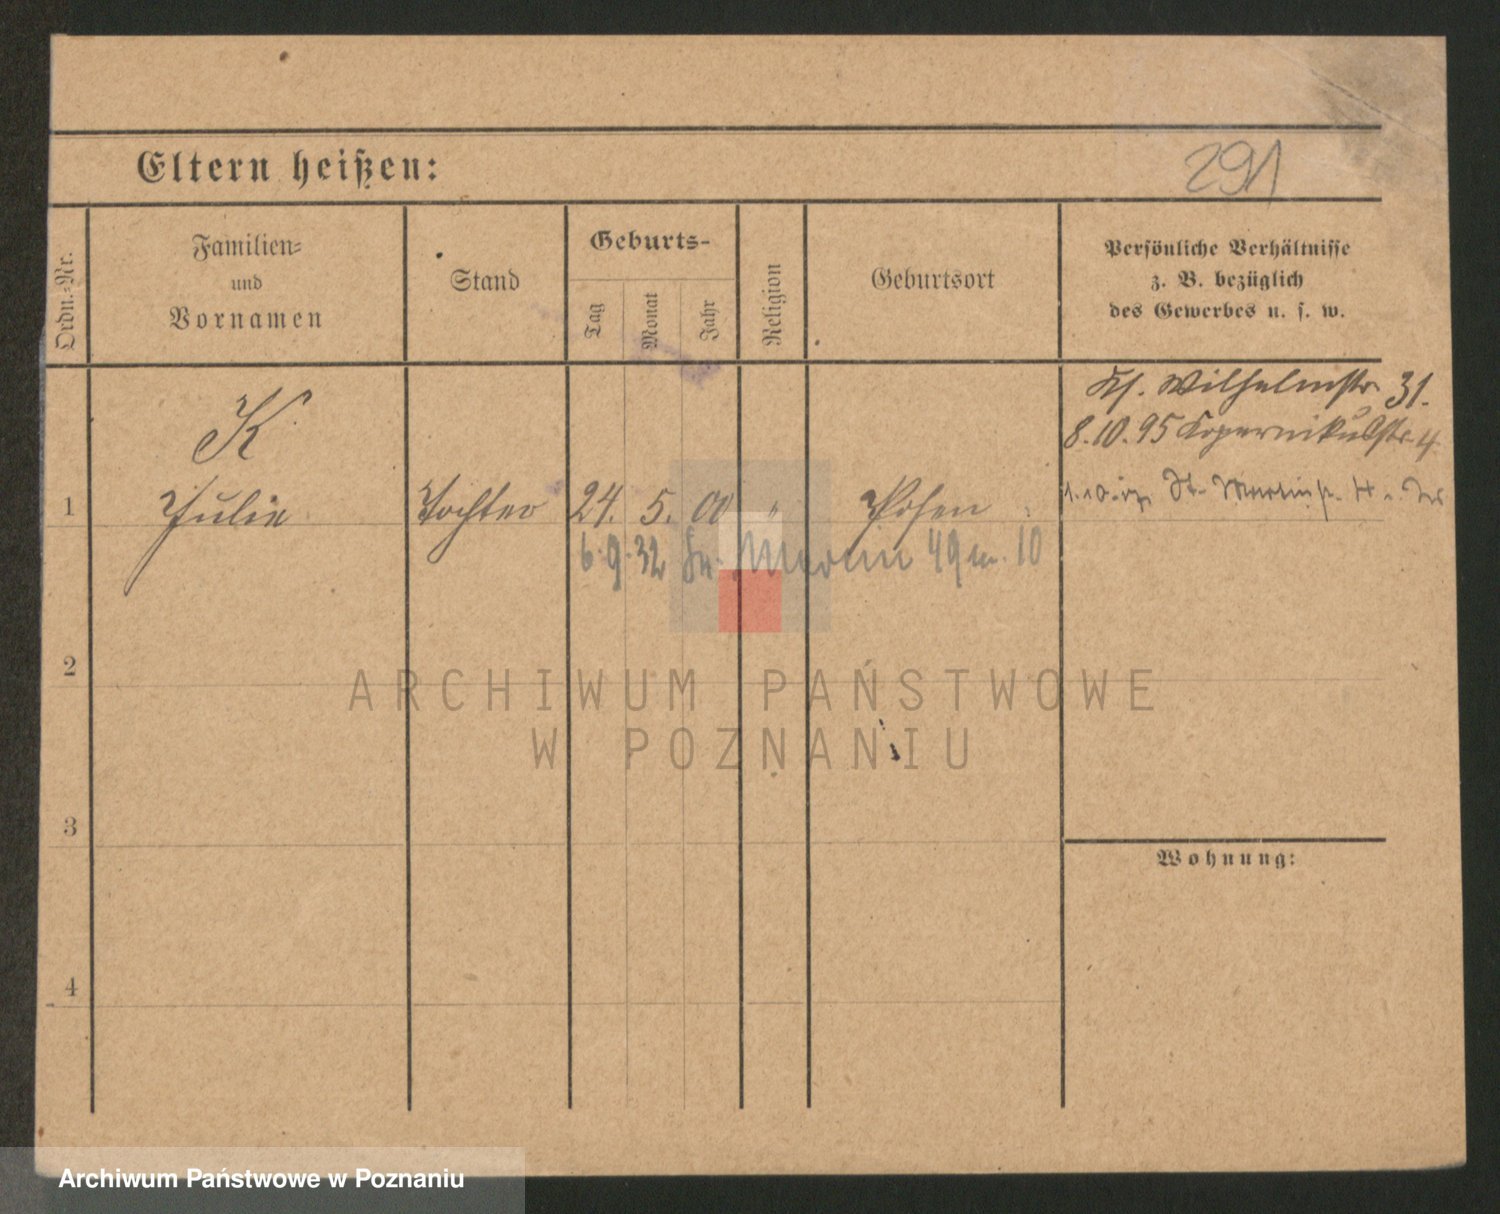 Eltern heißen:
291
Ordn.-Nr.
Familien-
und
Vornamen
Stand
Geburts-
Tag
Monat
Jahr
Religion
Geburtsort
Persönliche Verhältnisse
z. B. bezüglich
des Gewerbes u. s. w.
K
Wilhelmstr. 31.
8.10.95 Kopernikusstr. 4.
1 Julie Tochter 24. 5. 00 " Posen
St. Martinstr.
6.9.32 Martin 49 10
2
ARCHIWUM PAŃSTWOWE
W POZNANIU
3
Wohnung:
4
Archiwum Państwowe w Poznaniu